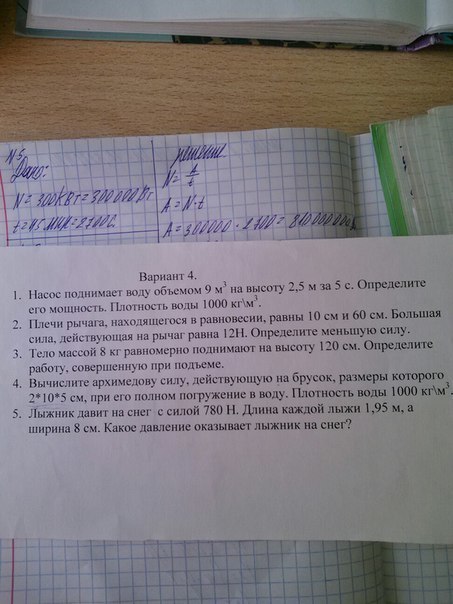 №5
Дано:
решение
N = 300кВт = 300000 Вт
N = A/t
t = 45 мин = 2700с.
A = N·t
A = 300000 · 2700 = 810000000
Вариант 4.
1. Насос поднимает воду объемом 9 м³ на высоту 2,5 м за 5 с. Определите
его мощность. Плотность воды 1000 кг\м³.
2. Плечи рычага, находящегося в равновесии, равны 10 см и 60 см. Большая
сила, действующая на рычаг равна 12Н. Определите меньшую силу.
3. Тело массой 8 кг равномерно поднимают на высоту 120 см. Определите
работу, совершенную при подъеме.
4. Вычислите архимедову силу, действующую на брусок, размеры которого
2*10*5 см, при его полном погружение в воду. Плотность воды 1000 кг\м³.
5. Лыжник давит на снег с силой 780 Н. Длина каждой лыжи 1,95 м, а
ширина 8 см. Какое давление оказывает лыжник на снег?